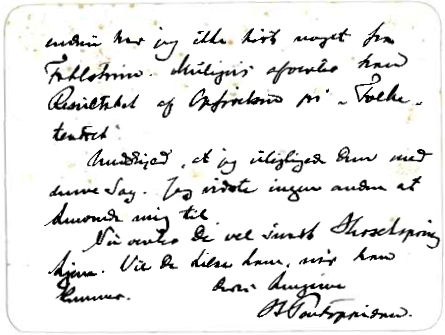 endnu har jeg ikke hørt noget fra
Fahlstrøm. Muligvis afventer han
Resultatet af Opførelsen på "Folke-
teatret".
Undskyld, at jeg uleiliger Dem med
denne Sag. Jeg vidste ingen anden at
henvende mig til.
Nu venter De vel snart
hjem. Vil De hilse ham, når han
kommer.
Deres hengivne
H. Pontoppidan.